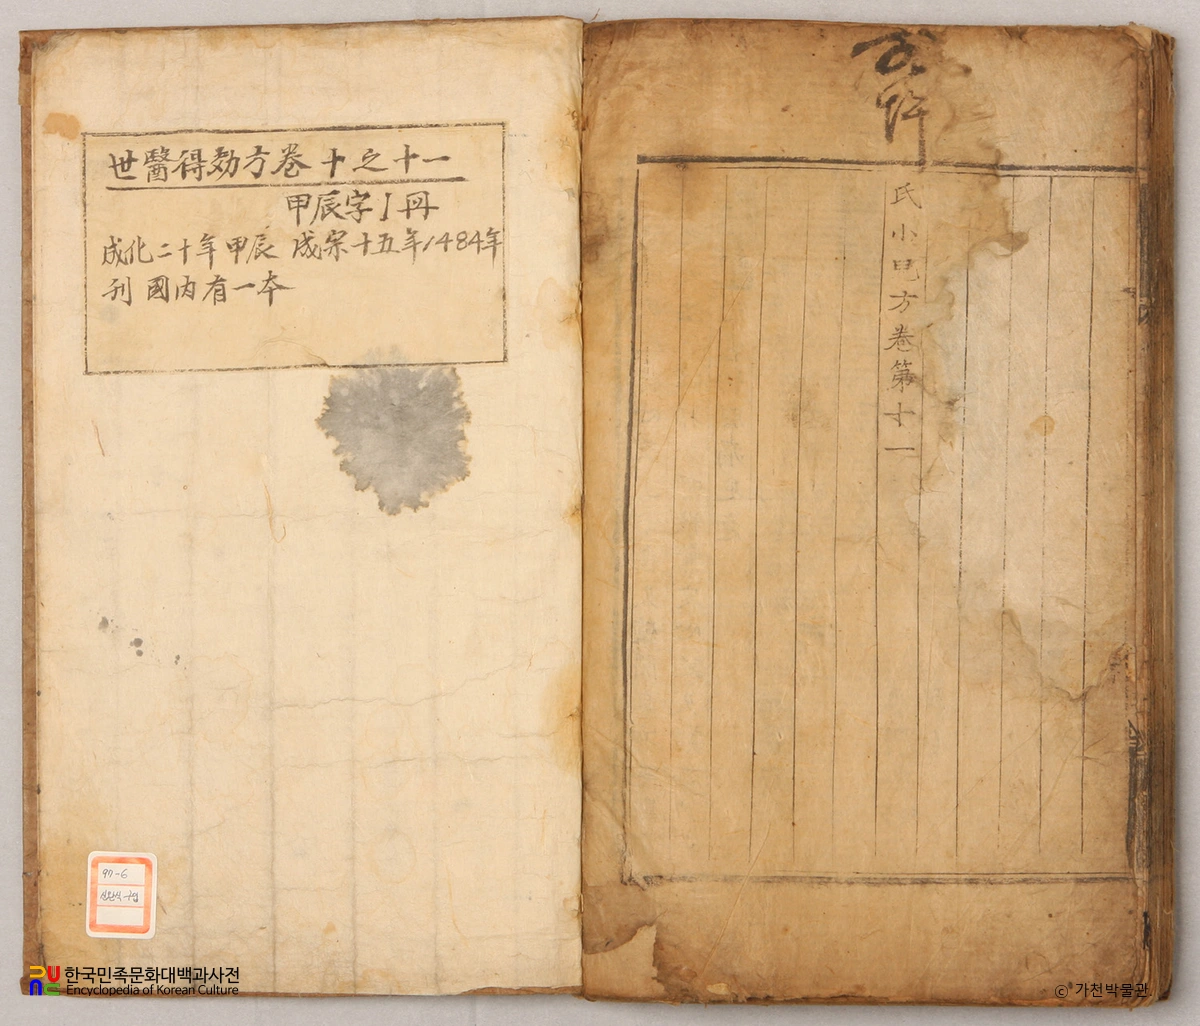 世醫得効方卷十之十一
甲辰字1冊
成化二十年甲辰 成宗十五年1484年
刊 國內有一本
氏小
方卷第十一
97-6
한국민족문화대백과사전
Encyclopedia of Korean Culture
ⓒ 가천박물관.